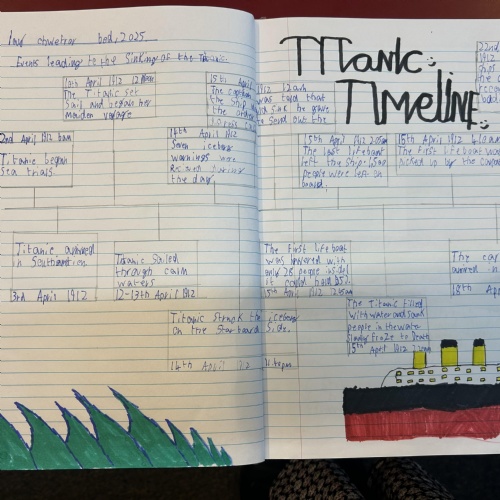 bed, 2025.
Events leading to the Sinking of the Titanic
TITanic
TImeLiNE
10th April 1912 12
The Titanic set
Sail and began her
Maiden voyage
15th April 1912 12am
The captain was told that
the ship
sink he gave
the orders to send out the
22nd
1912
2nd April 1912 6am
Titanic began
Sea trials.
14th April 1912
Seven iceberg
warnings were
during
the day.
15th April 1912 2:05am
The last lifeboat
left the ship. 1500
people were left on
board.
15th April 1912 4:10am
The first lifeboat was
picked up by the
Titanic arrived
in Southampton
3rd April 1912
Titanic Sailed
through calm
waters
12-13th April 1912
The first lifeboat
was lowered with
only 28 people inside
it could hold 65.
15th April 1912
The
arrived in
18th April
Titanic struck the iceberg
on the Starboard Side.
14th April 1912
The Titanic filled
with water and sank
people in the water
Slowly froze to Death
15th April 1912